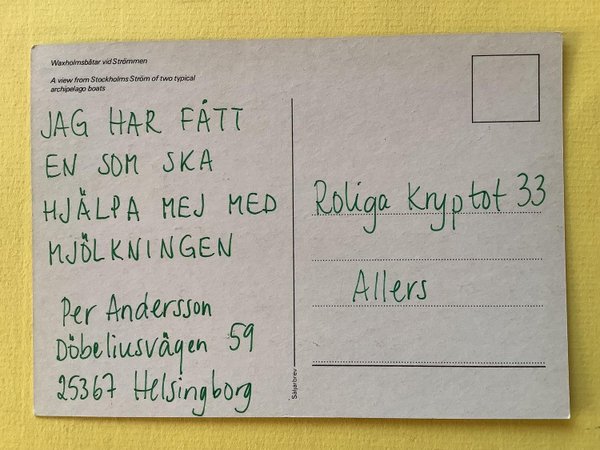 Waxholmsbåtar vid Strömmen
A view from Stockholms Ström of two typical
archipelago boats
JAG HAR FÅTT
EN SOM SKA
HJÄLPA MEJ MED
MJÖLKNINGEN
Per Andersson
Döbeliusvägen 59
25367 Helsingborg
Säljarbrev
Roliga Kryptot 33
Allers